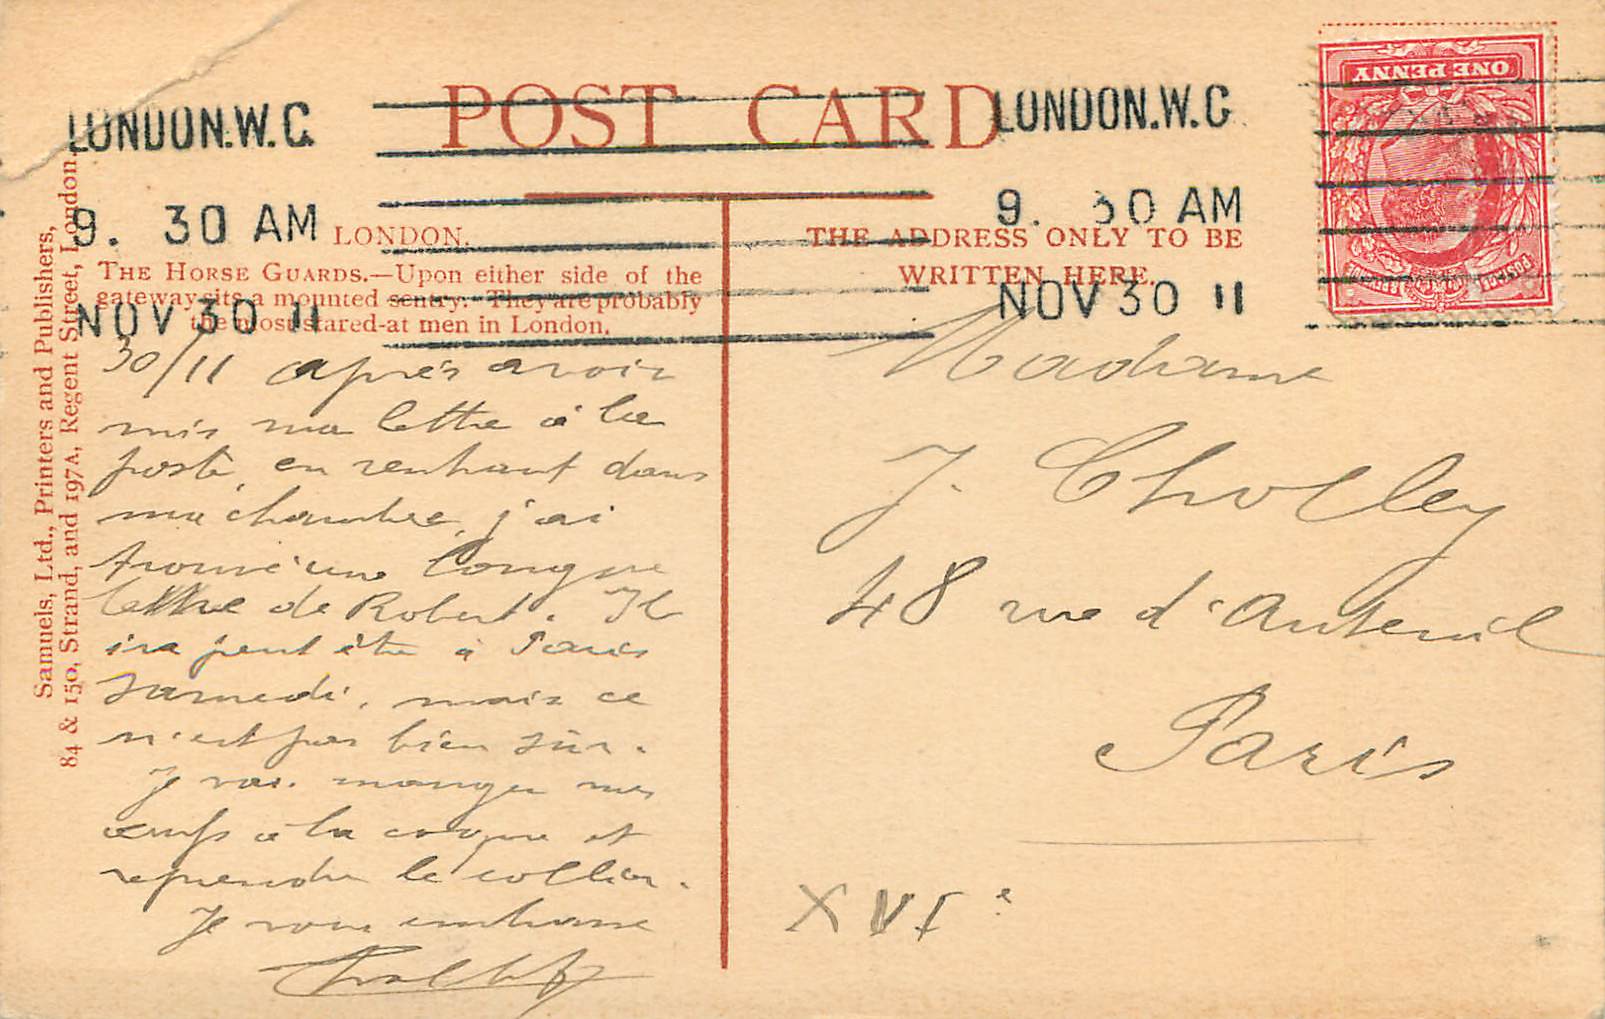 POST CARD
LONDON.W.C.
9. 30 AM
NOV 30 11
LONDON.W.C
9. 30 AM
NOV 30 11
ONE PENNY
LONDON.
THE HORSE GUARDS.—Upon either side of the
gateway sits a mounted sentry. They are probably
the most stared-at men in London.
THE ADDRESS ONLY TO BE
WRITTEN HERE.
Samuels, Ltd., Printers and Publishers,
84 & 150, Strand, and 197A, Regent Street, London.
30/11 après avoir
mis ma lettre à la
poste, en rentrant dans
ma chambre, j'ai
trouvé une longue
lettre de Robert. Il
ira peut être à Paris
samedi, mais ce
n'est pas bien sûr.
Je vais manger mes
œufs à la coque et
reprendre le collier.
Je vous embrasse
Madame
J. Cholley
48 rue d'Auteuil
Paris
XVIe